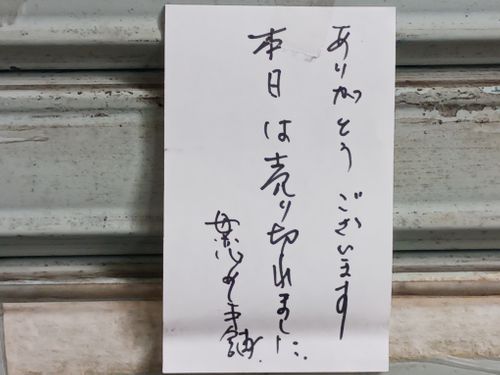 ありがとうございます
本日は売り切れました.